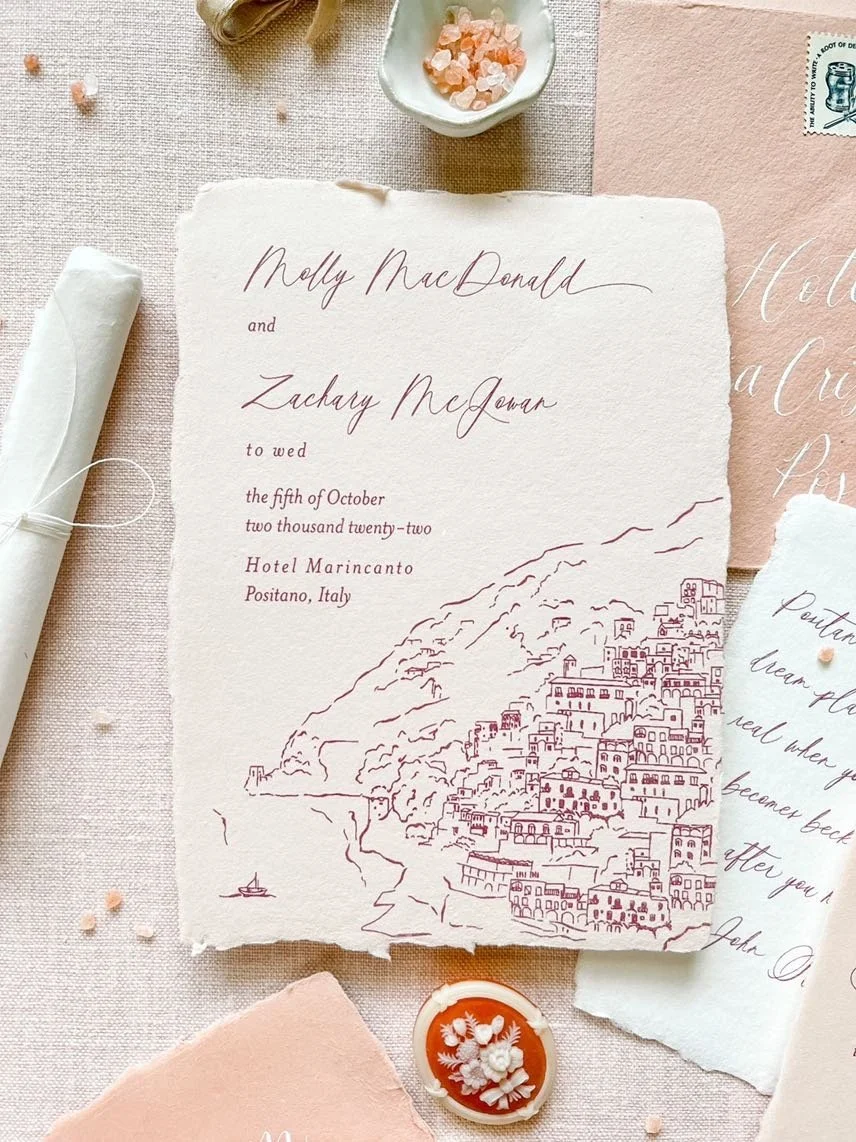 Molly MacDonald
and
Zachary McGowan
to wed
the fifth of October
two thousand twenty-two
Hotel Marincanto
Positano, Italy
THE ABILITY TO WRITE · A ROOT OF DE
Hote
a Cris
Pos
Positan
dream pla
real when yo
becomes beck
after you
John